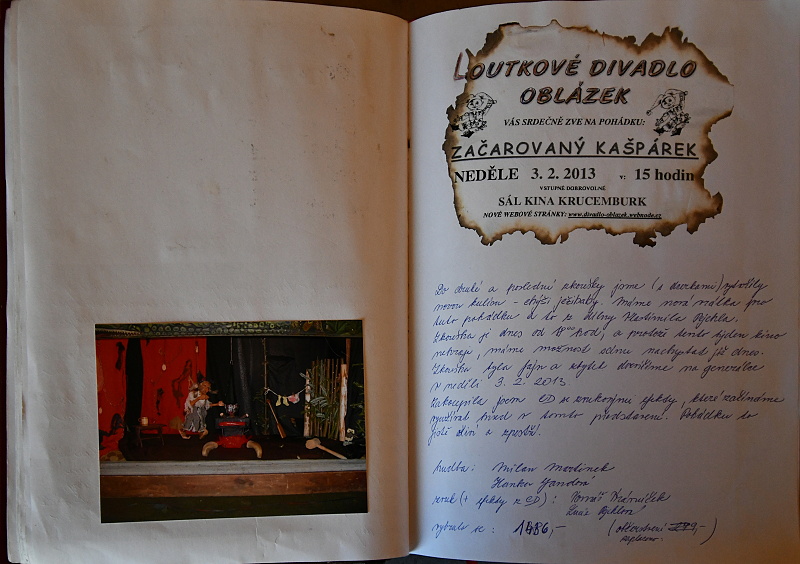 LOUTKOVÉ DIVADLO
OBLÁZEK
VÁS SRDEČNĚ ZVE NA POHÁDKU:
ZAČAROVANÝ KAŠPÁREK
NEDĚLE 3. 2. 2013 v: 15 hodin
VSTUPNÉ DOBROVOLNÉ
SÁL KINA KRUCEMBURK
NOVÉ WEBOVÉ STRÁNKY: www.divadlo-oblazek.webnode.cz
Do druhé a poslední zkoušky jsme (s dcerkami) vytvořily
novou kulisu - chýši ježibaby. Máme nová
tuto pohádku a to z dílny Vlastimila Pychla.
Zkouška je dnes od hod, a protože tento týden kino
nehraje, máme možnost scénu nachystat již dnes.
Zkouška byla fajn a zbytek dovršíme na generálce
v neděli 3. 2. 2013.
Zakoupila jsem CD se zvukovými efekty, které začínáme
využívat hned v tomto představení. Pohádku to
jistě oživí a zpestří.
hudba: Milan Martinek
Hanka Jandová
zvuk (+ efekty z CD): Tomáš
Lucie Pychlová
vybralo se: 1486,- (občerstvení
zaplaceno: